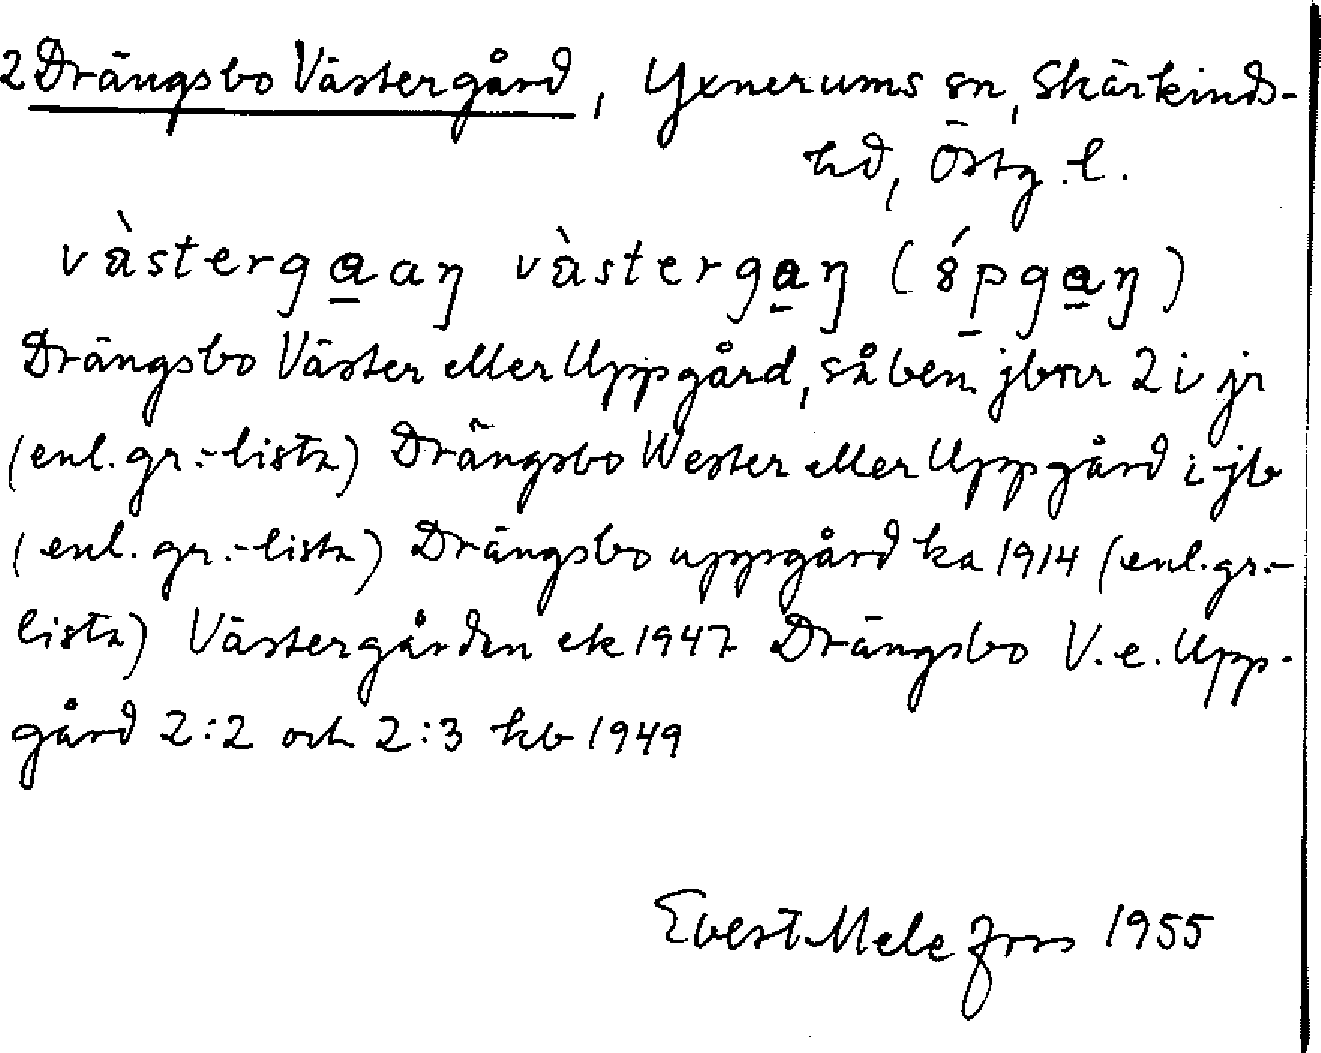 2 Drängsbo Västergård, Yxnerums sn, Skärkinds-
hd, Östg. l.
vàstergaaŋ vàstergaŋ (ǿpgaŋ)
Drängsbo Väster eller Uppgård, såben jbnr 2 i jr
(enl. gr.-lista) Drängsbo Wester eller Uppgård i jb
(enl. gr.-lista) Drängsbo uppgård ka 1914 (enl. gr.-
lista) Västergården ek 1947 Drängsbo V. e. Upp-
gård 2:2 och 2:3 kb 1949
Evert Melefors 1955